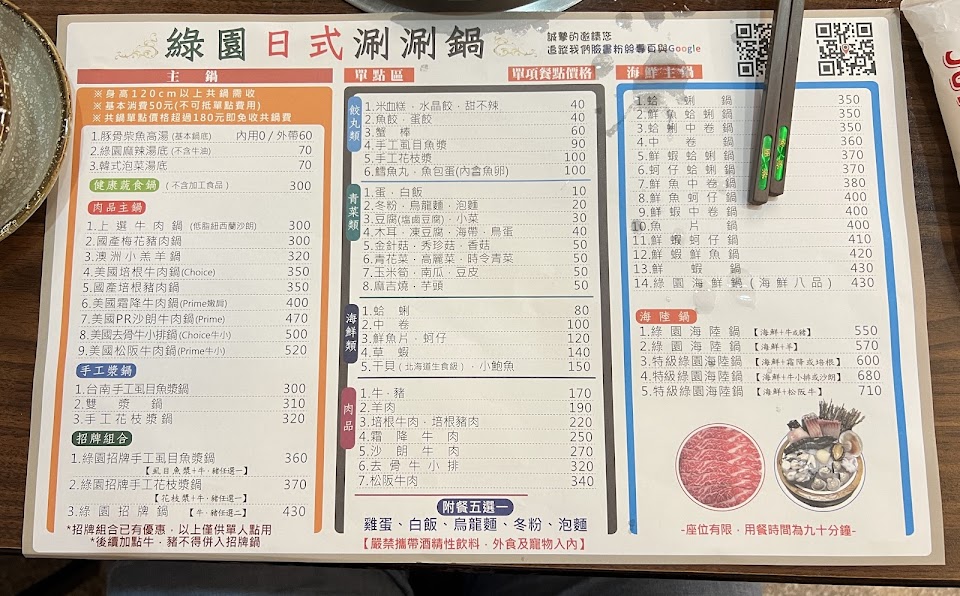 綠園日式涮涮鍋
誠摯的邀請您
追蹤我們臉書粉絲專頁與Google
主鍋
※身高120cm以上共鍋需收
※基本消費50元(不可抵單點費用)
※共鍋單點價格超過180元即免收共鍋費
1.豚骨柴魚高湯(基本鍋底) 內用0/外帶60
2.綠園麻辣湯底(不含牛油) 70
3.韓式泡菜湯底 70
健康蔬食鍋(不含加工食品) 300
肉品主鍋
1.上選牛肉鍋(低脂紐西蘭沙朗) 300
2.國產梅花豬肉鍋 300
3.澳洲小羔羊鍋 320
4.美國培根牛肉鍋(Choice) 350
5.國產培根豬肉鍋 350
6.美國霜降牛肉鍋(Prime嫩肩) 400
7.美國PR沙朗牛肉鍋(Prime) 470
8.美國去骨牛小排鍋(Choice牛小) 500
9.美國松阪牛肉鍋(Prime牛小) 520
手工漿鍋
1.台南手工虱目魚漿鍋 300
2.雙漿鍋 310
3.手工花枝漿鍋 320
招牌組合
1.綠園招牌手工虱目魚漿鍋 360
【虱目魚漿+牛.豬任選一】
2.綠園招牌手工花枝漿鍋 370
【花枝漿+牛.豬任選一】
3.綠園招牌鍋【牛.豬任選二】 430
*招牌組合已有優惠，以上僅供單人點用
*後續加點牛，豬不得併入招牌鍋
單點區 單項餐點價格
餃丸類
1.米血糕．水晶餃．甜不辣 40
2.魚餃．蛋餃 40
3.蟹棒 60
4.手工虱目魚漿 90
5.手工花枝漿 100
6.鱈魚丸．魚包蛋(內會魚卵) 100
青菜類
1.蛋．白飯 10
2.冬粉．烏龍麵．泡麵 20
3.豆腐(塩鹵豆腐)．小菜 30
4.木耳．凍豆腐．海帶．鳥蛋 40
5.金針菇．秀珍菇．香菇 50
6.青花菜．高麗菜．時令青菜 50
7.玉米筍．南瓜．豆皮 50
8.麻吉燒．芋頭 50
海鮮類
1.蛤蜊 80
2.中卷 100
3.鮮魚片．蚵仔 120
4.草蝦 140
5.干貝(北海道生食級)．小鮑魚 150
肉品
1.牛．豬 170
2.羊肉 190
3.培根牛肉．培根豬肉 220
4.霜降牛肉 250
5.沙朗牛肉 270
6.去骨牛小排 320
7.松阪牛肉 340
附餐五選一
雞蛋、白飯、烏龍麵、冬粉、泡麵
【嚴禁攜帶酒精性飲料，外食及寵物入內】
海鮮主鍋
1.蛤蜊鍋 350
2.鮮魚蛤蜊鍋 350
3.蛤蜊中卷鍋 350
4.中卷鍋 360
5.鮮蝦蛤蜊鍋 370
6.蚵仔蛤蜊鍋 370
7.鮮魚中卷鍋 380
8.鮮魚蚵仔鍋 400
9.鮮蝦中卷鍋 400
10.魚片鍋 400
11.鮮蝦蚵仔鍋 410
12.鮮蝦鮮魚鍋 420
13.鮮蝦鍋 430
14.綠園海鮮鍋(海鮮八品) 430
海陸鍋
1.綠園海陸鍋【海鮮+牛或豬】 550
2.綠園海陸鍋【海鮮+羊】 570
3.特級綠園海陸鍋【海鮮+霜降或培根】 600
4.特級綠園海陸鍋【海鮮+牛小排或沙朗】 680
5.特級綠園海陸鍋【海鮮+松阪牛】 710
-座位有限，用餐時間為九十分鐘-